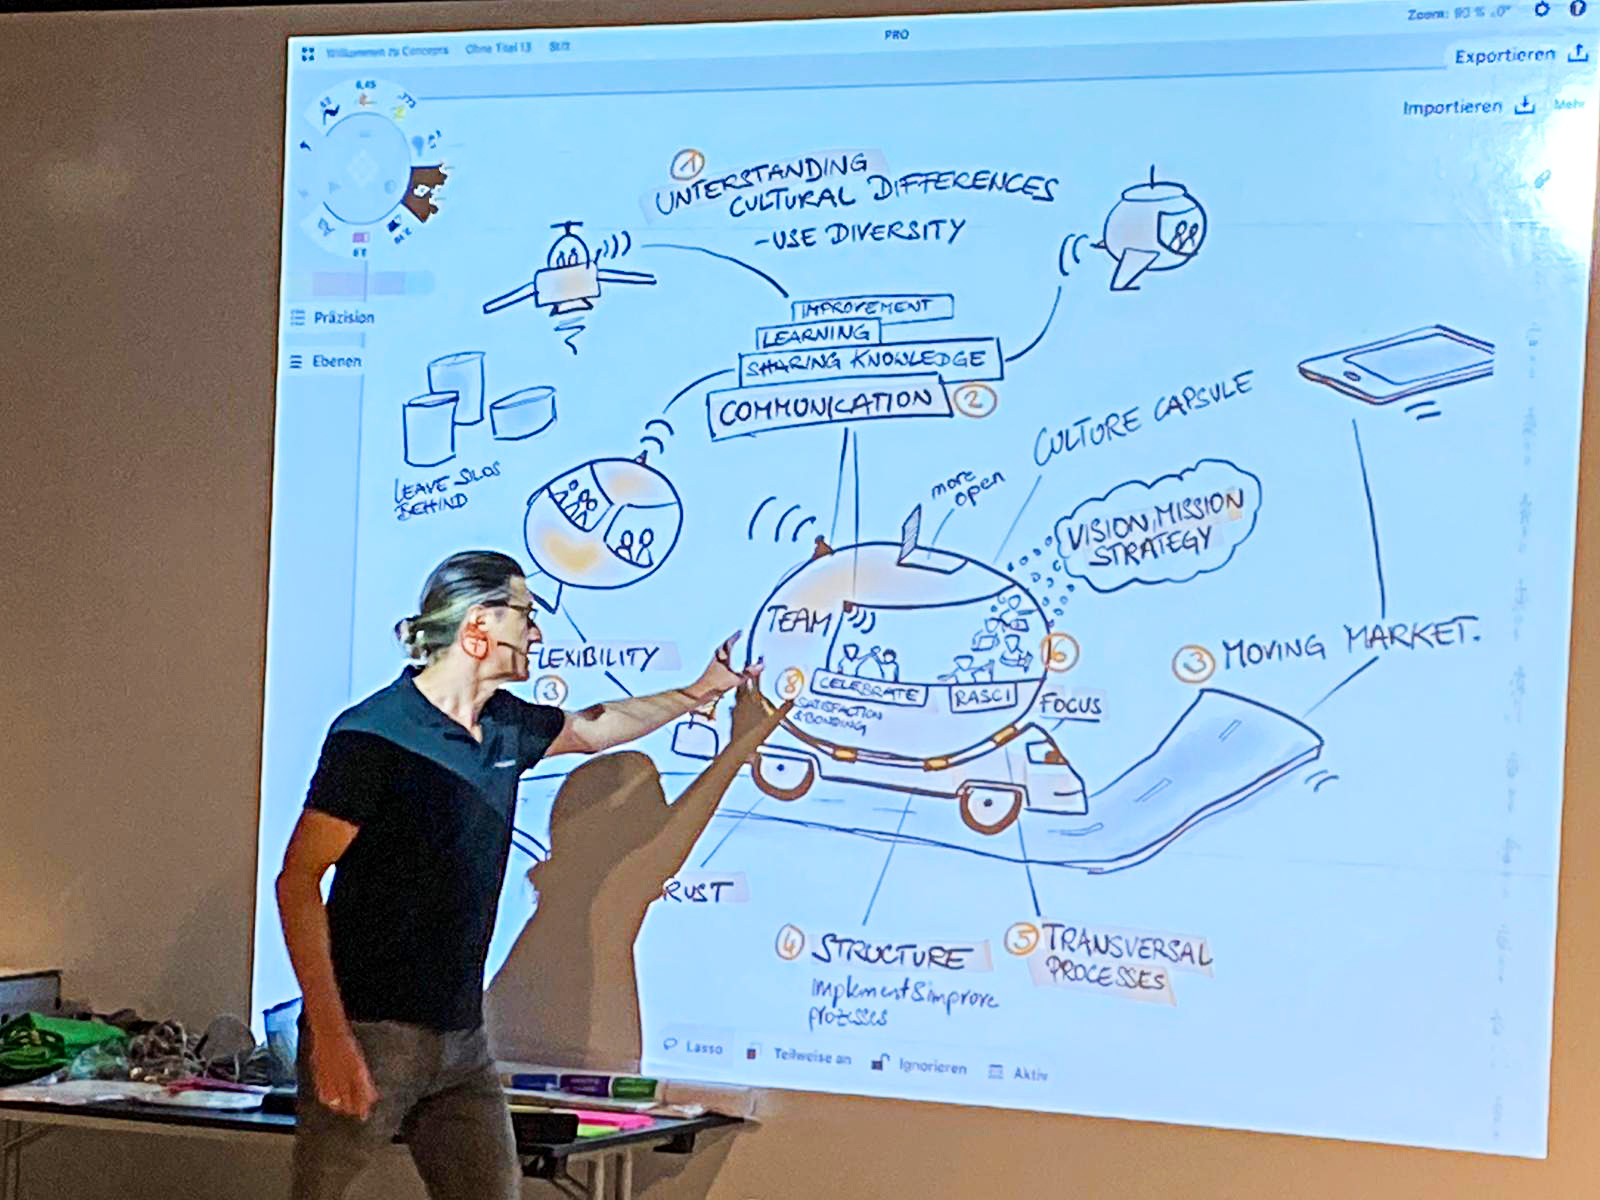 Willkommen zu Concepts Ohne Titel 13 Stift
PRO
Zoom: 90 % 0°
Exportieren
Importieren Mehr
6,45
Präzision
Ebenen
1
UNTERSTANDING
CULTURAL DIFFERENCES
-USE DIVERSITY
IMPROVEMENT
LEARNING
SHARING KNOWLEDGE
COMMUNICATION 2
LEAVE SILOS
BEHIND
CULTURE CAPSULE
more
open
VISION, MISSION
STRATEGY
TEAM
FLEXIBILITY
3
CELEBRATE
8
SATISFACTION
& BONDING
RASCI
6
FOCUS
3 MOVING MARKET.
RUST
4 STRUCTURE
implement & improve
prozesses
5 TRANSVERSAL
PROCESSES
Lasso Teilweise an Ignorieren Aktiv